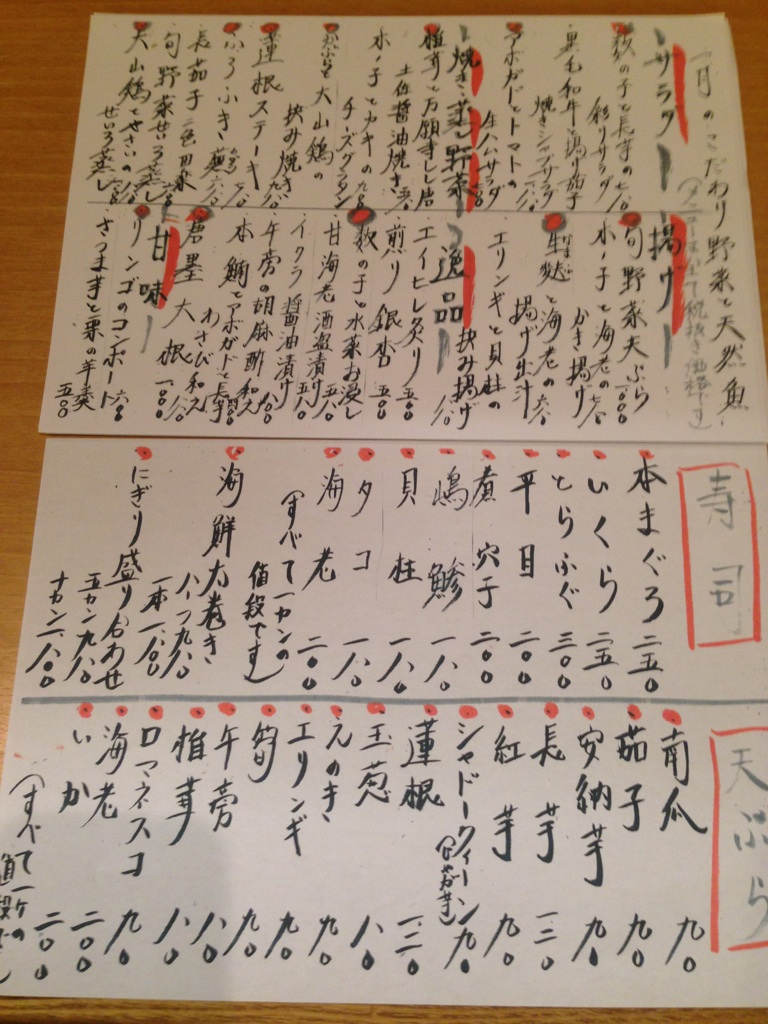 一月のこだわり野菜と天然魚
(メニューは全て税抜き価格です)
サラダ
数の子と長芋の
彩りサラダ
黒毛和牛と鶏
焼きシャブサラダ
アボガドとトマトの
生ハムサラダ
焼き・蒸し野菜
椎茸と万願寺しし唐
土佐醤油焼き
木ノ子とカキの
チーズグラタン
かぶらと大山鶏の
挟み焼き
蓮根ステーキ
ふろふき
長茄子二色田楽
旬野菜せいろ蒸し
大山鶏とやさいの
せいろ蒸し
揚げ
旬野菜天ぷら 一〇〇〇
木ノ子と海老の
かき揚げ
生麩と海老の
揚げ出汁
エリンギと貝柱の
挟み揚げ
逸品
エイヒレ炙り 五〇〇
煎り銀杏 五〇〇
数の子と水菜お浸し
甘海老酒盗漬け 五八〇
イクラ醤油漬け 五八〇
牛蒡の胡麻酢和え
本鮪とアボガドと長芋
わさび和え
唐墨大根 一〇〇〇
甘味
リンゴのコンポート 六〇〇
さつま芋と栗の羊羹 五〇〇
寿司
本まぐろ 二五〇
いくら 二五〇
とらふぐ 三〇〇
平目 二〇〇
煮穴子 二〇〇
嶋鯵 一八〇
貝柱 一八〇
タコ 一八〇
海老 二〇〇
(すべて一カンの
値段です)
海鮮太巻き
ハーフ九八〇
一本一八〇〇
にぎり盛り合わせ
五カン九八〇
十カン一八〇〇
天ぷら
南瓜 九〇
茄子 九〇
安納芋 九〇
長芋 一二〇
紅芋 九〇
シャドークィーン (じゃがいも) 九〇
蓮根 一二〇
玉葱 八〇
えのき 九〇
エリンギ 九〇
筍 九〇
牛蒡 八〇
椎茸 八〇
ロマネスコ 九〇
海老 二〇〇
いか 二〇〇
(すべて一ヶの
値段です